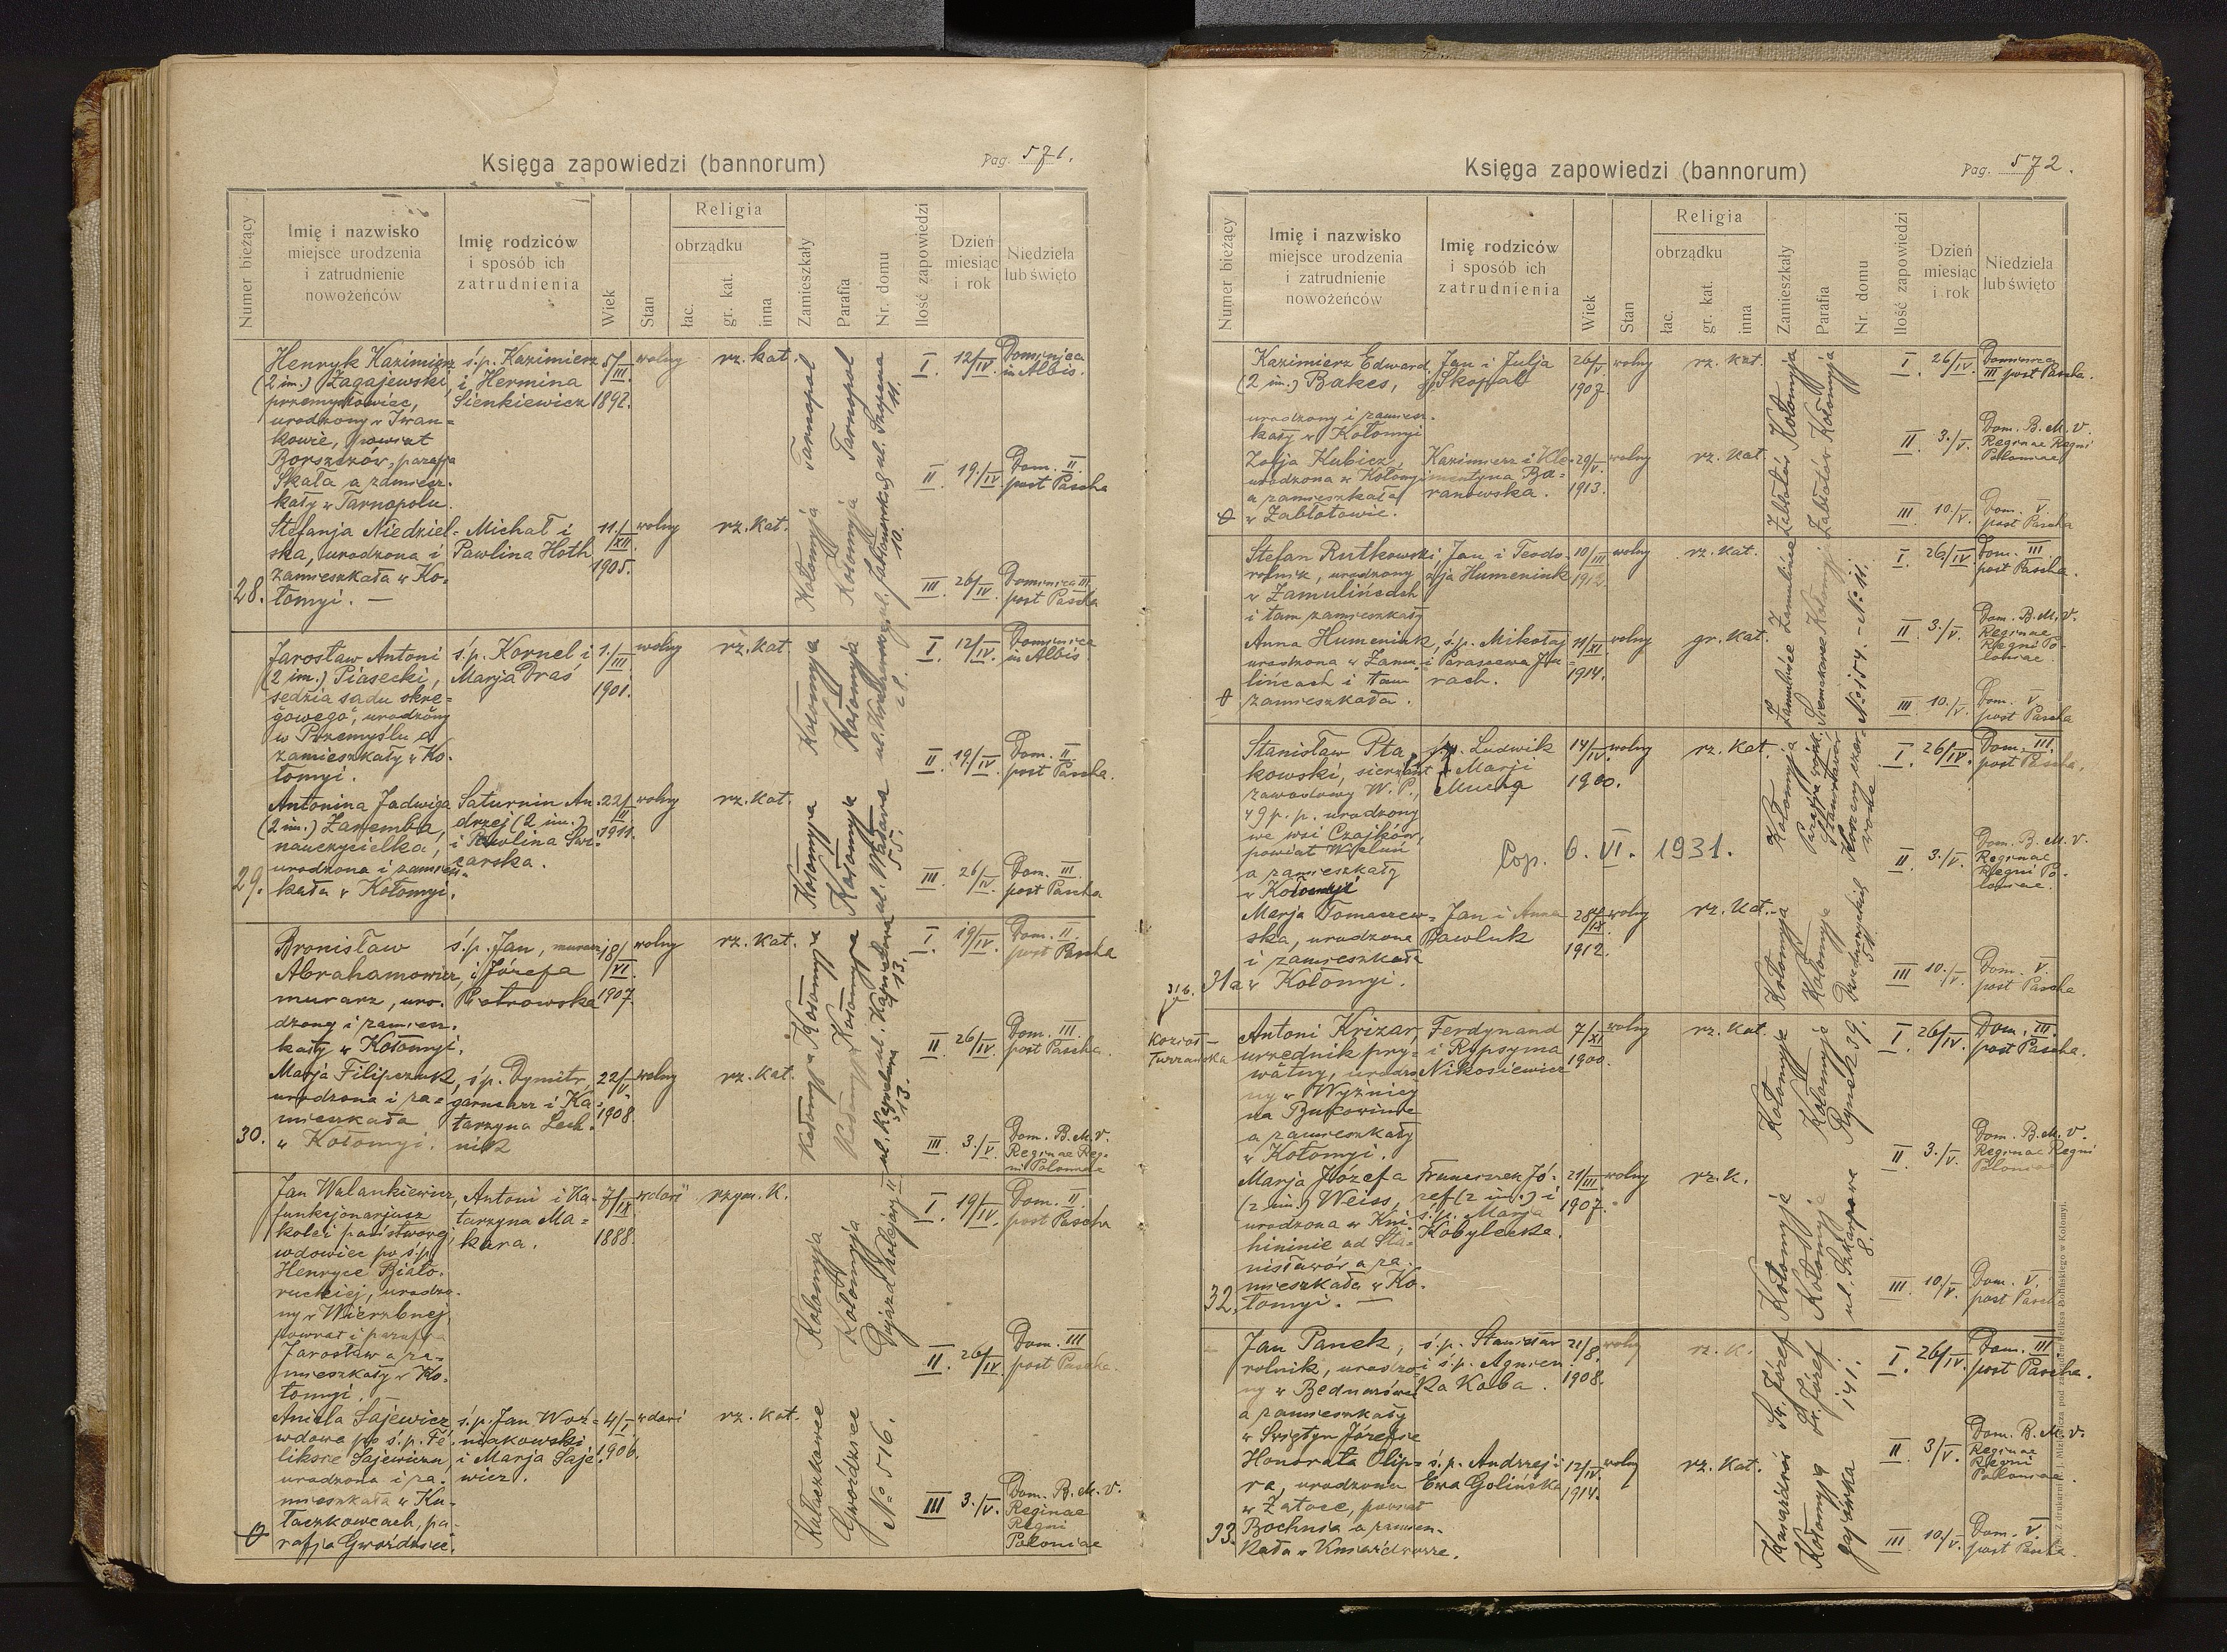 Księga zapowiedzi (bannorum)
Pag. 571.
Numer bieżący
Imię i nazwisko
miejsce urodzenia
i zatrudnienie
nowożeńców
Imię rodziców
i sposób ich
zatrudnienia
Wiek
Stan
Religia
obrządku
łac.
gr. kat.
inna
Zamieszkały
Parafia
Nr. domu
Ilość zapowiedzi
Dzień
miesiąc
i rok
Niedziela
lub święto
Henryk Kazimierz
(2 im.) Zagajewski,
przemysłowiec,
urodzony w Iwan=
kowie, powiat
Borszczów, parafja
Skała a zamiesz.
kały w Tarnopolu.
ś.p. Kazimierz
i Hermina
Sienkiewicz
5/III.
1892.
wolny
rz. kat.
Tarnopol
Tarnopol
11.
I. 12/IV. Dominica in Albis.
II 19./IV. Dom. II. post Pascha
III 26/IV. Dominica III. post Pascha
Stefanja Niedziel=
ska, urodzona i
zamieszkała w Ko.
28. łomyi. —
Michał i
Pawlina Hoth
11./XII.
1905.
wolny
rz. kat.
Kołomyja
Kołomyja
10.
Jarosław Antoni
(2 im.) Piasecki,
sędzia sądu okrę=
gowego, urodzony
w Przemyślu a
zamieszkały w Ko.
łomyi.
ś.p. Kornel i
Marja Draś
1./III.
1901.
wolny
rz. kat.
Kołomyja
Kołomyja
I. 12/IV. Dominica in Albis
II 19./IV. Dom. II. post Pascha.
III 26/IV. Dom. III. post Pascha
Antonina Jadwiga
(2 im.) Zaremba,
nauczycielka,
urodzona i zamiesz=
29. kała w Kołomyi.
Saturnin An.
drzej (2 im.)
i Pawlina
22/II
1911.
wolny
rz. kat.
Kołomyja
Kołomyja
55.
Bronisław
Abrahamowicz,
murarz, uro.
dzony i zamiesz.
kały w Kołomyi.
ś.p. Jan, murarz
i Józefa
Piotrowska
18/VI.
1907.
wolny
rz. kat.
Kołomyja
Kołomyja
13.
I. 19/IV. Dom. II. post Pascha
II 26/IV. Dom. III. post Pascha.
III 3./V. Dom. B.M.V. Reginae Reg=ni Poloniae
Marja Filipczuk,
urodzona i za=
mieszkała
30. w Kołomyi.
ś.p. Dymitr,
garncarz i Ka=
tarzyna Lech.
nik
22/V.
1908.
wolny
rz. kat.
Kołomyja
Kołomyja
13.
Jan Walankiewicz,
funkcjonarjusz
kolei państwowej,
wdowiec po ś.p.
Henryce Biało.
ruckiej, urodzo.
ny w Wierzbnej,
powiat i parafja
Jarosław a za=
mieszkały w Ko.
łomyi.
Antoni i Ka=
tarzyna Ma=
kara.
7/IX.
1888.
rzym. K.
Kołomyja
Kołomyja
I. 19/IV. Dom. II. post Pascha
II. 26/IV. Dom. III post Pascha.
III 3./V. Dom. B.M.V. Reginae Regni Poloniae
Aniela Sajewicz,
wdowa po ś.p. Fe.
liksie Sajewiczu,
urodzona i za.
mieszkała w Ku=
łaczkowcach, pa=
rafja Gwoździec.
ś.p. Jan Woź=
niakowski
i Marja Saje.
wicz.
4/I.
1906.
rz. kat.
Kułaczkowce
Gwoździec
No 516.
Księga zapowiedzi (bannorum)
Pag. 572.
Numer bieżący
Imię i nazwisko
miejsce urodzenia
i zatrudnienie
nowożeńców
Imię rodziców
i sposób ich
zatrudnienia
Wiek
Stan
Religia
obrządku
łac.
gr. kat.
inna
Zamieszkały
Parafia
Nr. domu
Ilość zapowiedzi
Dzień
miesiąc
i rok
Niedziela
lub święto
Kazimierz Edward
(2 im.) Bakes,
urodzony i zamiesz.
kały w Kołomyi
Jan i Julja
Skopal
26/V.
1907.
wolny
rz. kat.
Kołomyja
Kołomyja
I. 26/IV. Dominica III post Pascha.
II 3./V. Dom. B.M.V. Reginae Regni Poloniae
III 10./V. Dom. V. post Pascha
Zofja Kubicz,
urodzona w Kołomyi
a zamieszkała
w Zabłotowie.
Kazimierz i Kle=
mentyna Ba=
ranowska.
29/V.
1913.
wolny
rz. kat.
Zabłotów
Zabłotów
Stefan Rutkowski,
rolnik, urodzony
w Zamulińcach
i tam zamieszkały
Jan i Teodo.
zja Humeniuk
10/III
1912.
wolny
rz. kat.
Zamulińce
No 11.
I. 26/IV Dom. III. post Pascha.
II 3./V. Dom. B.M.V. Reginae Regni Po=loniae.
III 10./V. Dom. V post Pascha
Anna Humeniuk,
urodzona w Zamu=
lińcach i tam
zamieszkała.
ś.p. Mikołaj
i Paraszewa
11/XI
1914.
wolny
gr. kat.
Zamulińce
No 154.
Stanisław Pta
kowski, sierżant
zawodowy W. P.,
49 p. p. urodzony
we wsi Czajków,
powiat Wieluń
a zamieszkały
w Kołomyi
ś.p. Ludwik
i Marji
Mucha
14/IV.
1900.
wolny
rz. kat.
Kołomyja
Cop. 6. VI. 1931.
I. 26/IV. Dom. III. post Pascha.
II 3./V. Dom. B.M.V. Reginae Regni Po.loniae.
III 10./V. Dom. V. post Pascha
Marja Tomaszew=
ska, urodzona
i zamieszkała
31a w Kołomyi.
Jan i Anna
Pawluk
28/IX.
1912.
wolny
rz. kat.
Kołomyja
Kołomyja
31b.
Kozioł –
Turzańska
Antoni Krizar,
urzędnik pry=
watny, urodzo
ny w Wyżnicy
na Bukowinie
a zamieszkały
w Kołomyi.
Ferdynand
i Rypsyma
Nikosiewicz
7/XI
1900.
wolny
rz. kat.
Kołomyja
Kołomyja
Rynek 39.
I 26/IV. Dom. III. post Pascha.
II 3./V. Dom. B.M.V. Reginae Regni Poloniae
III 10./V. Dom. V. post Pascha
Marja Józefa
(2 im.) Weiss,
urodzona w Kni.
hininie ad Sta=
nisławów a za.
mieszkała w Ko.
32. łomyi. —
Franciszek Jó.
zef (2 im.) i
ś.p. Marja
Kobylecka.
21/III.
1907.
wolny
rz. K.
Kołomyja
Kołomyja
8.
Jan Panek,
rolnik, urodzo
ny w Bednarówce
a zamieszkały
w Świętym Józefie
ś.p. Stanisław
i ś.p. Agniesz
ka Kaba.
21/8.
1908.
wolny
rz. K.
Św. Józef
Św. Józef
141.
I. 26/IV. Dom. III. post Pascha.
II 3/V. Dom. B.M.V. Reginae Regni Poloniae.
III 10./V. Dom. V. post Pascha.
Honorata Olip=
ra, urodzona
w Zatoce, powiat
Bochnia a zamiesz=
33. kała w Kniaźdworze.
ś.p. Andrzej i
Ewa Golińska
12/IV.
1914.
wolny
rz. kat.
Kniaźdwór
Kołomyja